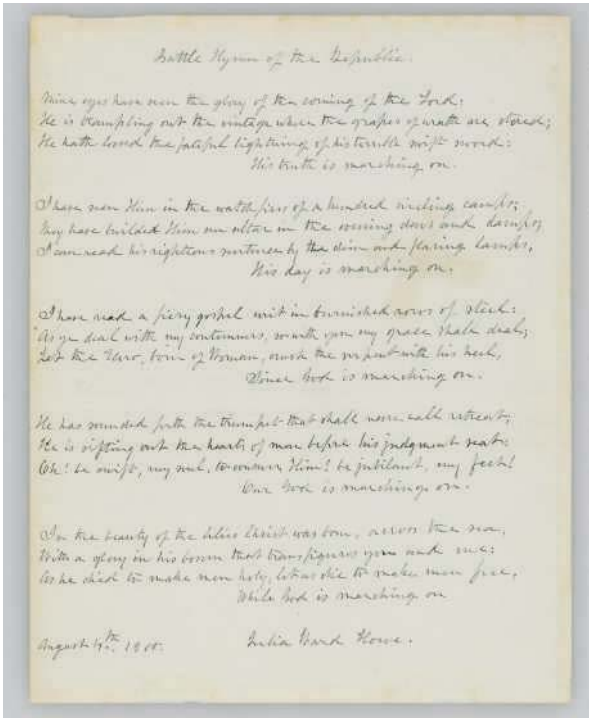 Battle Hymn of the Republic.
Mine eyes have seen the glory of the coming of the Lord:
He is trampling out the vintage where the grapes of wrath are stored;
He hath loosed the fateful lightning of his terrible swift sword:
His truth is marching on.
I have seen Him in the watchfires of a hundred circling camps;
They have builded Him an altar in the evening dews and damps;
I can read his righteous sentence by the dim and flaring lamps,
His day is marching on.
I have read a fiery gospel writ in burnished rows of steel:
"As ye deal with my contemners, so with you my grace shall deal;
Let the Hero, born of Woman, crush the serpent with his heel,
Since God is marching on.
He has sounded forth the trumpet that shall never call retreat;
He is sifting out the hearts of men before his judgment seat:
Oh! be swift, my soul, to answer Him! be jubilant, my feet!
Our God is marching on.
In the beauty of the lilies Christ was born, across the sea,
With a glory in his bosom that transfigures you and me:
As he died to make men holy, let us die to make men free,
While God is marching on
August
Julia Ward Howe.